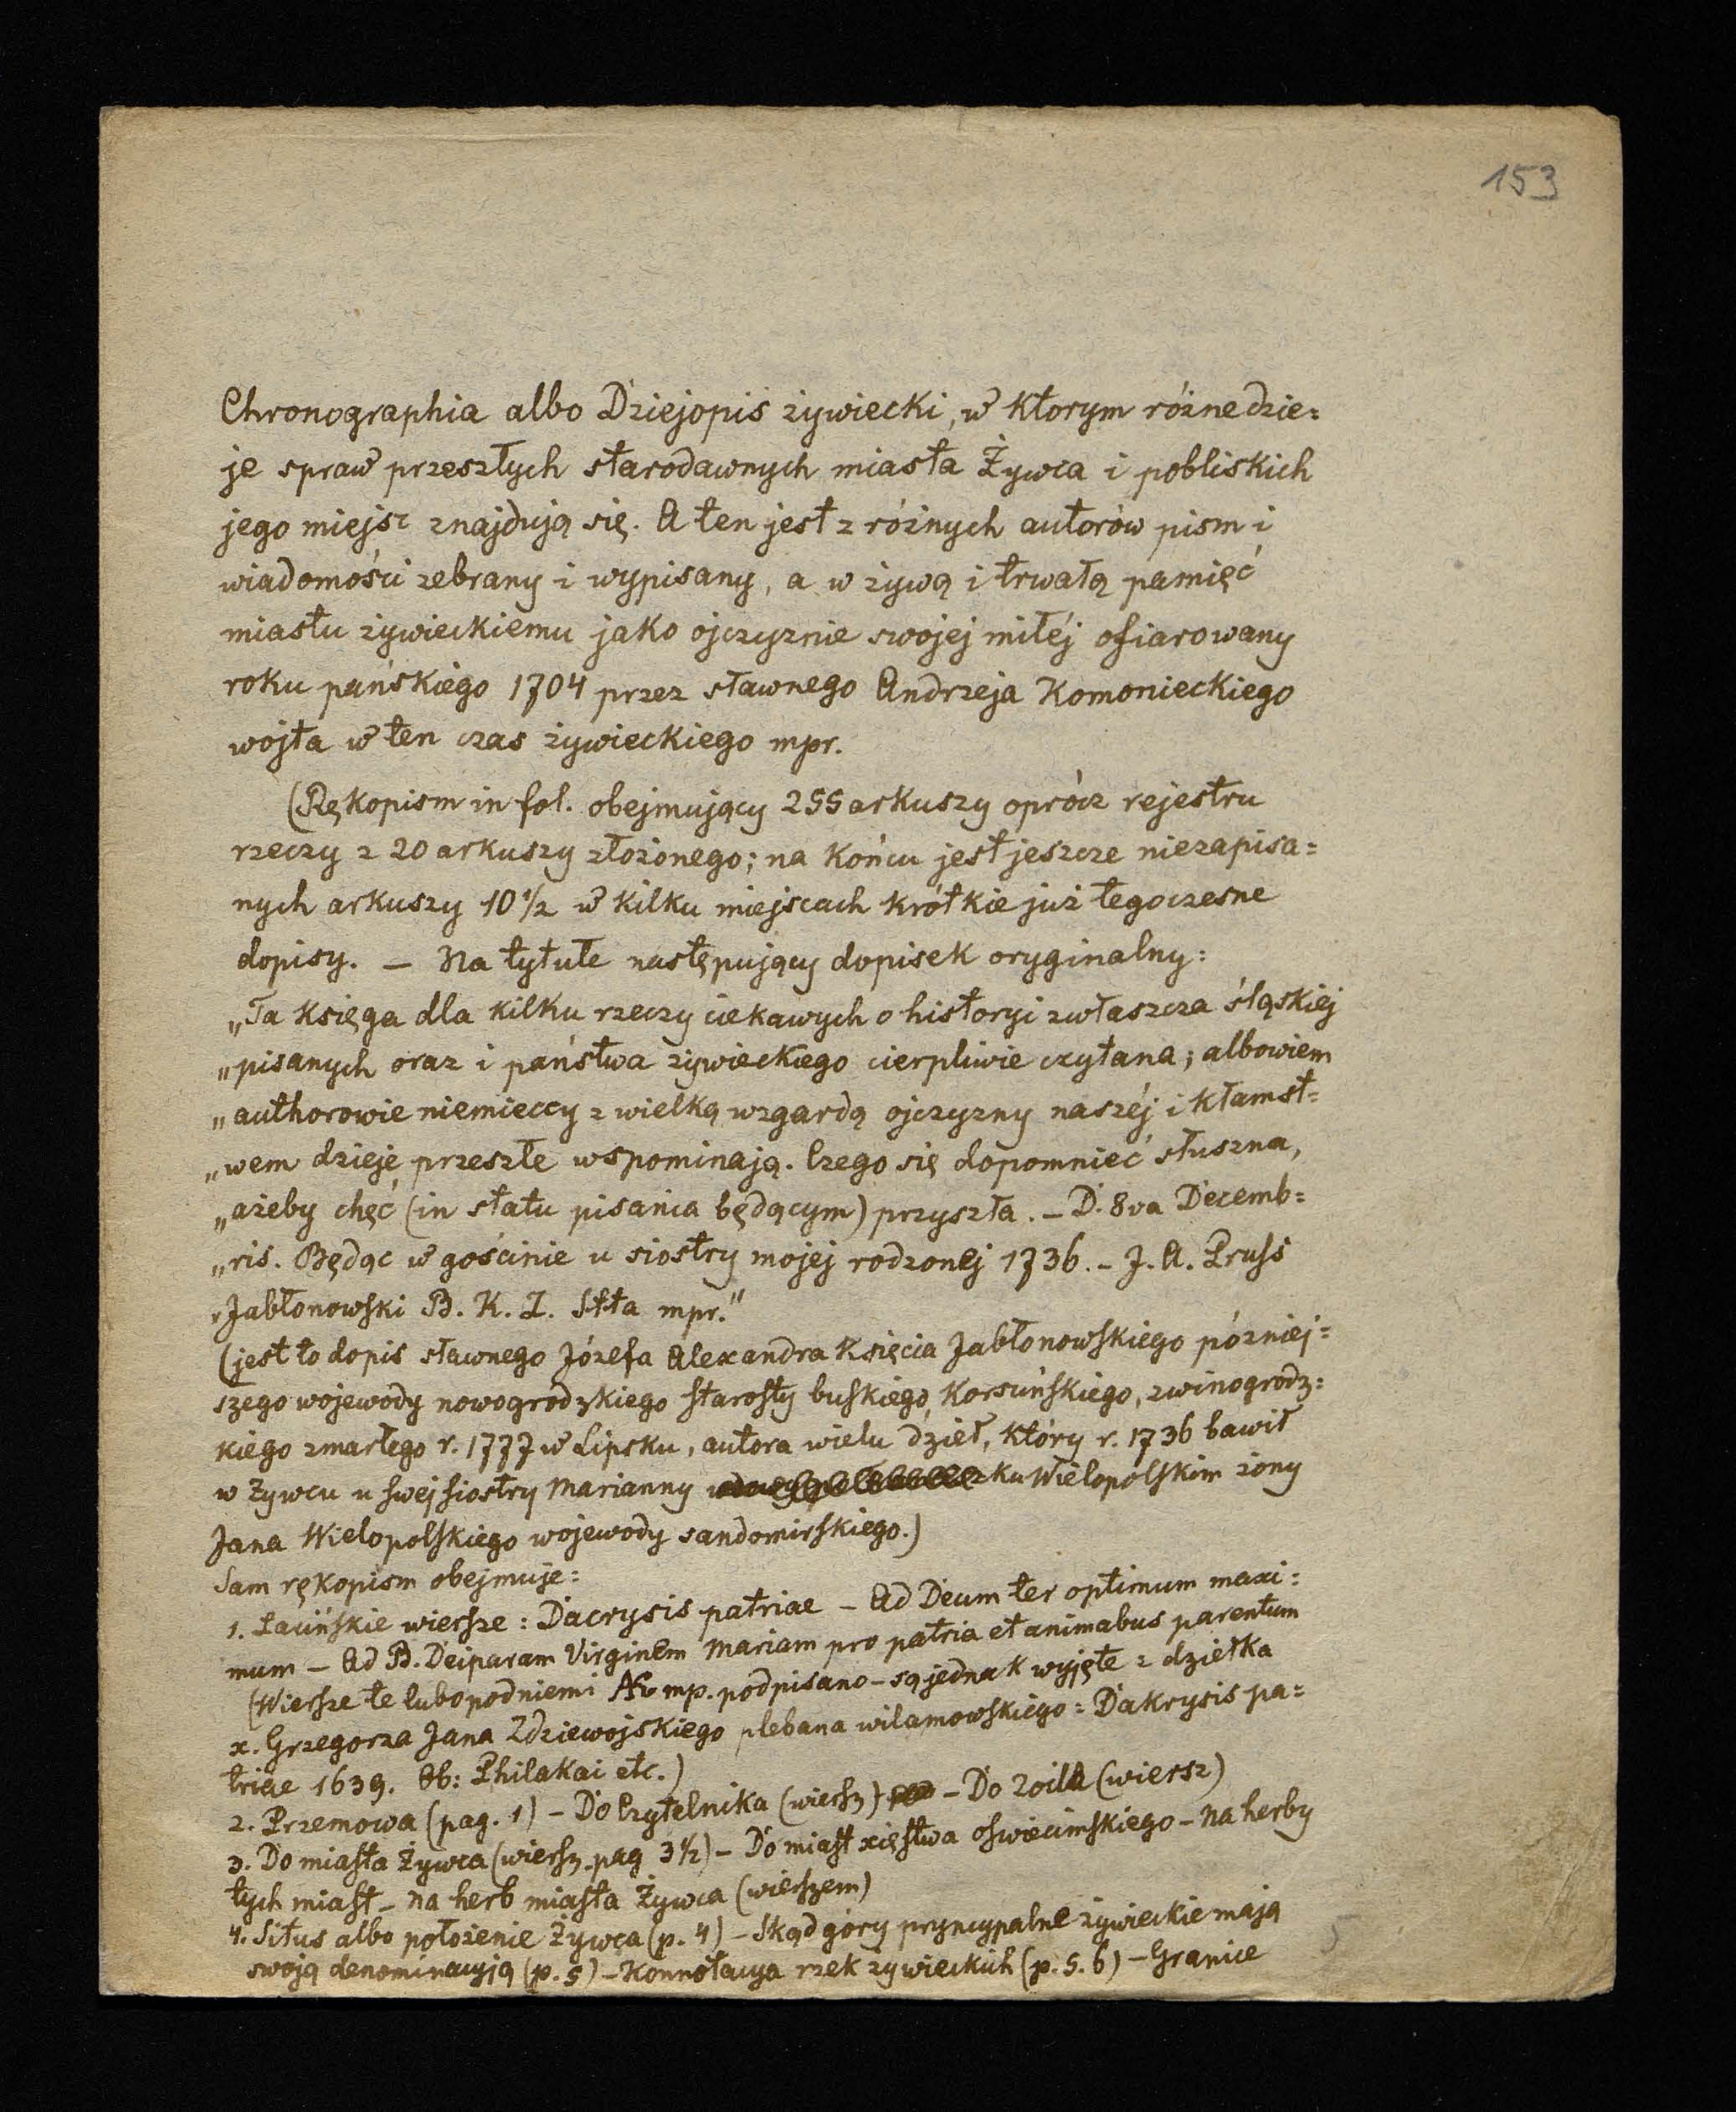 153
Chronographia albo Dziejopis żywiecki, w ktorym różne dzie=
je spraw przeszłych starodawnych miasta Żywca i pobliskich
jego miejsc znajdują się. A ten jest z różnych autorów pism i
wiadomości zebrany i wypisany, a w żywą i trwałą pamięć
miastu żywieckiemu jako ojczyznie swojej miłéj ofiarowany
roku pańskiego 1704 przez sławnego Andrzeja Komonieckiego
wojta w ten czas żywieckiego mpr.
(Rękopism in fol. obejmujący 255 arkuszy oprócz rejestru
rzeczy z 20 arkuszy złożonego; na końcu jest jeszcze niezapisa=
nych arkuszy 10 1/2 w kilku miejscach krótkie już tegoczesne
dopisy. — Na tytule następujący dopisek oryginalny:
„Ta księga dla kilku rzeczy ciekawych o historyi zwłaszcza śląskiej
„pisanych oraz i państwa żywieckiego cierpliwie czytana; albowiem
„authorowie niemieccy z wielką wzgardą ojczyzny naszéj i kłamst=
„wem dzieje przeszłe wspominają. Czego się dopomnieć słuszna,
„ażeby chęć (in statu pisania będącym) przyszła. – D. 8va Decemb=
„ris. Będąc w gościnie u siostry mojej rodzonej 1736. – J. A. Pruss
„Jabłonowski B. K. Z. Stta mpr."
(jest to dopis sławnego Józefa Alexandra Księcia Jabłonowskiego pózniej=
szego wojewody nowogrodzkiego starosty buskiego, Korsuńskiego, zwinogrodz=
kiego zmarłego r. 1777 w Lipsku, autora wielu dzieł, który r. 1736 bawił
w Żywcu u swej siostry Marianny ku Wielopolskim żony
Jana Wielopolskiego wojewody sandomirskiego.)
Sam rękopism obejmuje:
1. Łacińskie wiersze: Dacrysis patriae – Ad Deum ter optimum maxi=
mum – Ad B. Deiparam Virginem Mariam pro patria et animabus parentum
(Wiersze te lubo pod niemi AK mp. podpisano – są jednak wyjęte z dziełka
x. Grzegorza Jana Zdziewojskiego plebana wilamowskiego: Dakrysis pa=
triae 1639. Ob: Philakai etc.)
2. Przemowa (pag. 1) – Do Czytelnika (wiersz) – Do Zoila (wiersz)
3. Do miasta Żywca (wiersz. pag 3 1/2) – Do miast xięstwa oswiecimskiego – na herby
tych miast – na herb miasta Żywca (wierszem)
4. Situs albo położenie Żywca (p. 4) – Skąd góry pryncypalne żywieckie mają
swoją denominacyją (p. 5) – Konnotacya rzek żywieckich (p. 5. 6) – Granice
5